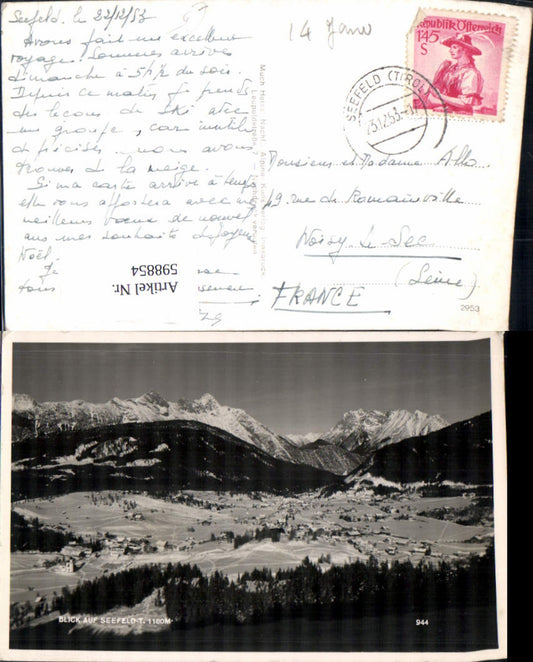 Seefeld, le 22/12/53
Avons fait un excellent
voyage. Sommes arrivés
dimanche à 5h½ du soir.
Depuis ce matin je prends
des leçons de ski avec
un groupe, car inutile
de préciser nous avons
trouvé de la neige.
Si ma carte arrive à temps
elle vous apportera avec nos
meilleurs voeux de nouvel
ans mes souhaits de joyeux
Noël.
Je
tous
14
Monsieur et Madame
49 rue de Romainville
Noisy le Sec
(Seine)
FRANCE
Republik Österreich
1'45
S
SEEFELD (TIROL)
Artikel Nr.
598854
2953
BLICK AUF SEEFELD-T. 1180M
944